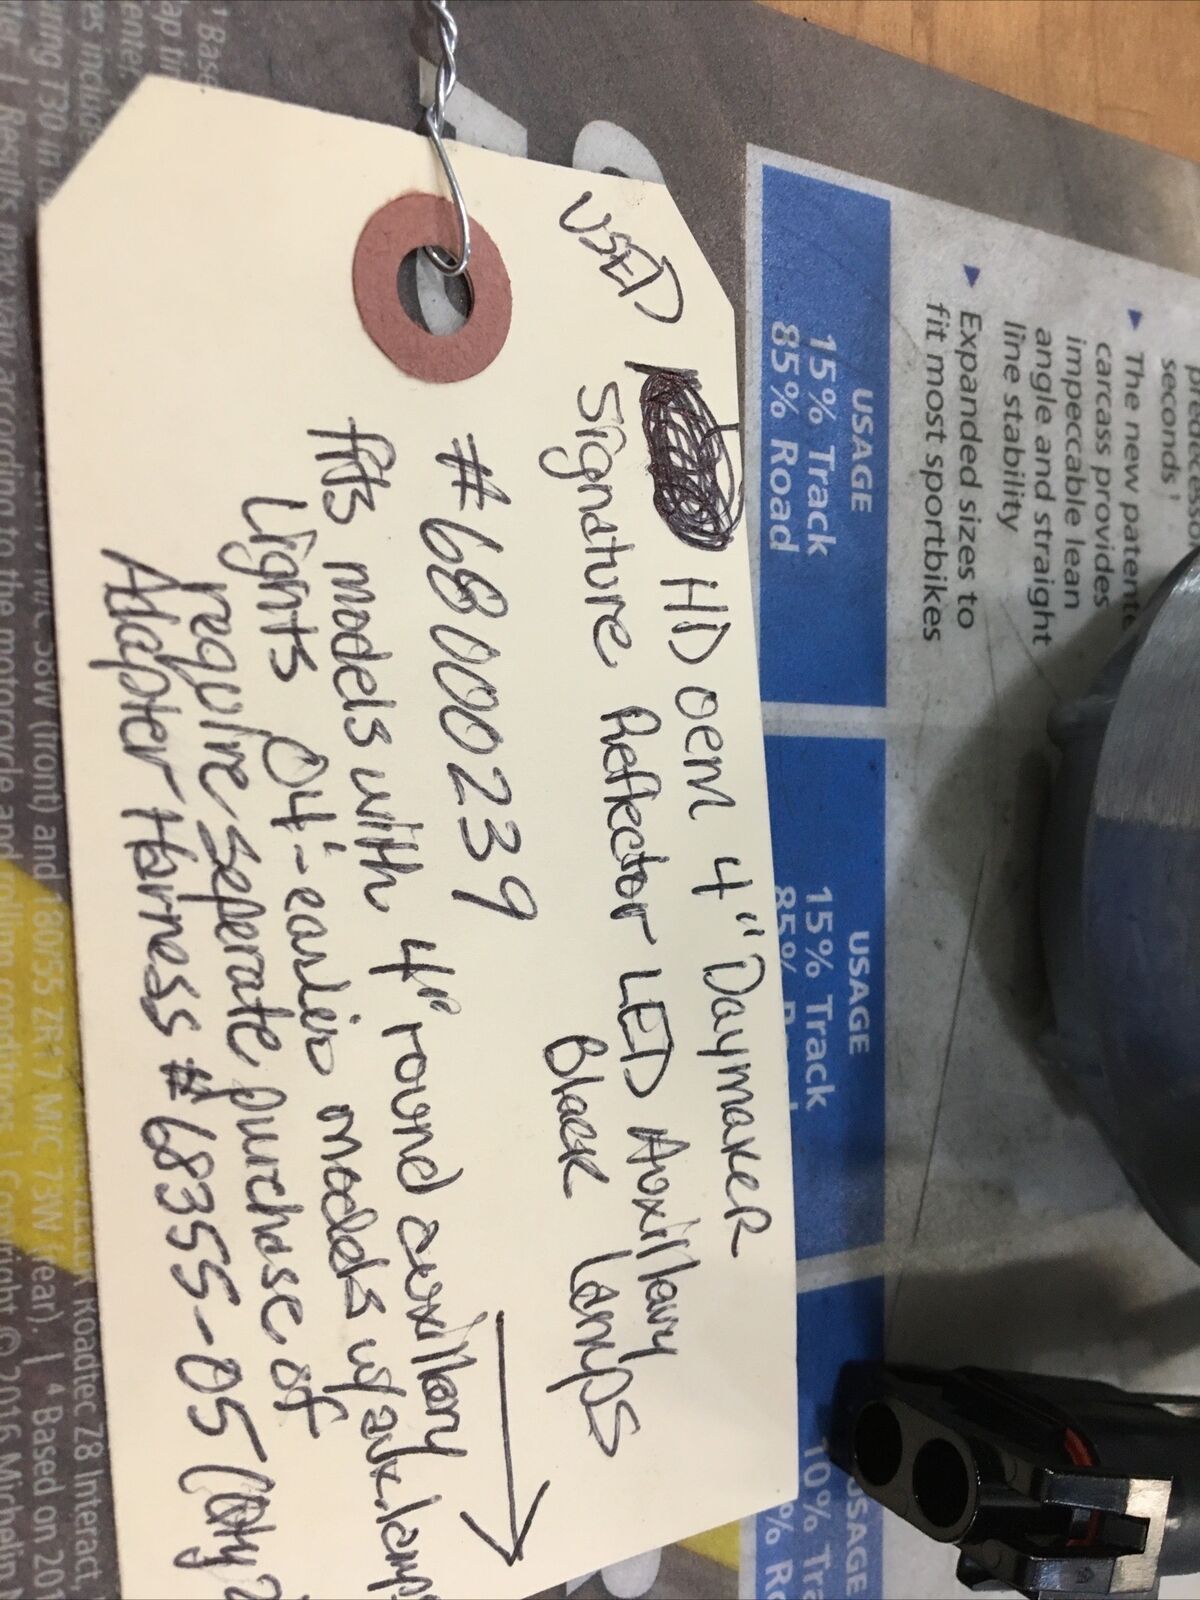 USED HD oem 4" Daymaker
Signature Reflector LED Auxillary
Black lamps
#68000239
fits models with 4" round auxillary
Lights 04'-earlier models w/aux.lamps
require seperate purchase of
Adapter Harness #68355-05 (Qty 2
USAGE
15% Track
85% Road
USAGE
15% Track
85%
USAGE
10%
seconds¹
The new
carcass provides
impeccable lean
angle and straight
line stability
Expanded sizes to
fit most sportbikes
¹ Base
Results may vary according to the motorcycle and rolling conditions. | Copyright © 2016 Michelin
58W (front) and 180/55 ZR17 M/C 73W (rear). | ⁴ Based on 201
Roadtec Z8 Interact,